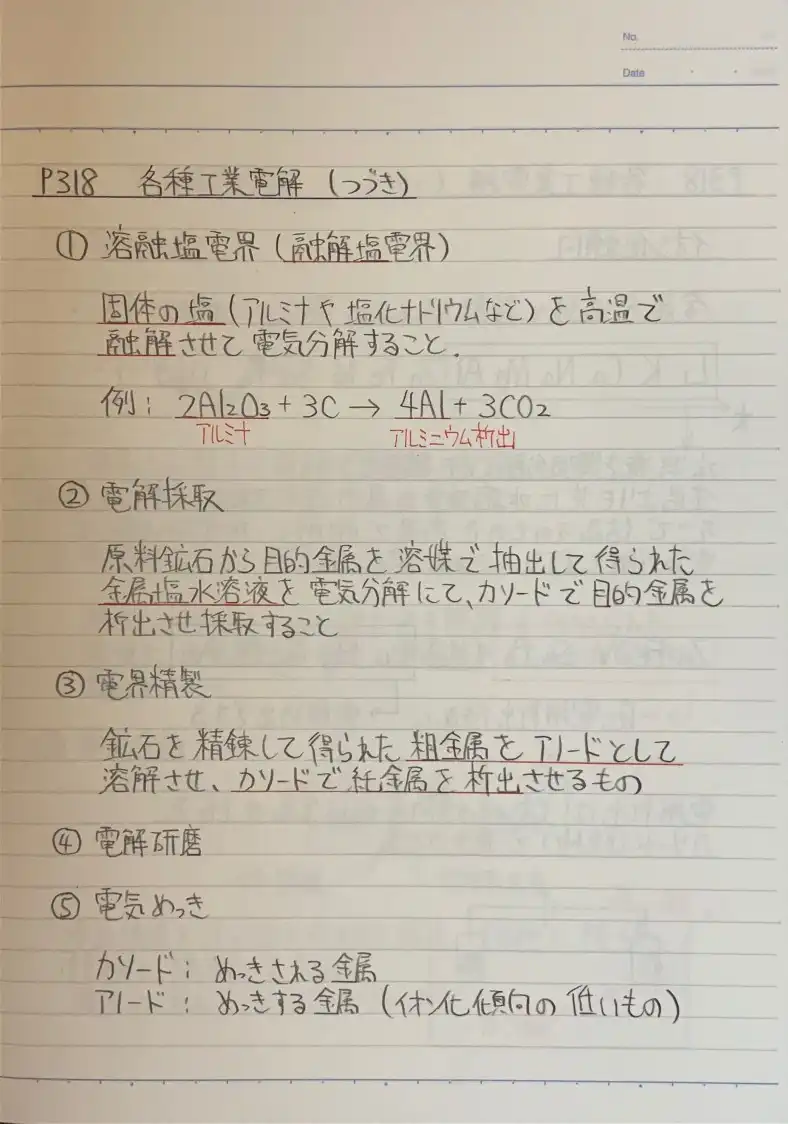 No.
Date
P318 各種工業電解 (つづき)
① 溶融塩電界 (融解塩電界)
固体の塩 (アルミナや塩化ナトリウムなど) を高温で
融解させて電気分解すること.
例: 2Al₂O₃ + 3C → 4Al + 3CO₂
アルミナ アルミニウム析出
② 電解採取
原料鉱石から目的金属を溶媒で抽出して得られた
金属塩水溶液を電気分解にて、カソードで目的金属を
析出させ採取すること
③ 電界精製
鉱石を精錬して得られた粗金属をアノードとして
溶解させ、カソードで純金属を析出させるもの
④ 電解研磨
⑤ 電気めっき
カソード: めっきされる金属
アノード: めっきする金属 (イオン化傾向の低いもの)